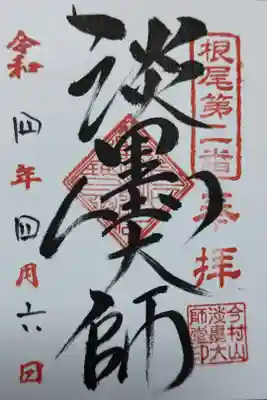 根尾第二番
奉拝
淡墨大師
令和四年四月六日
今村山
淡墨大
師堂印